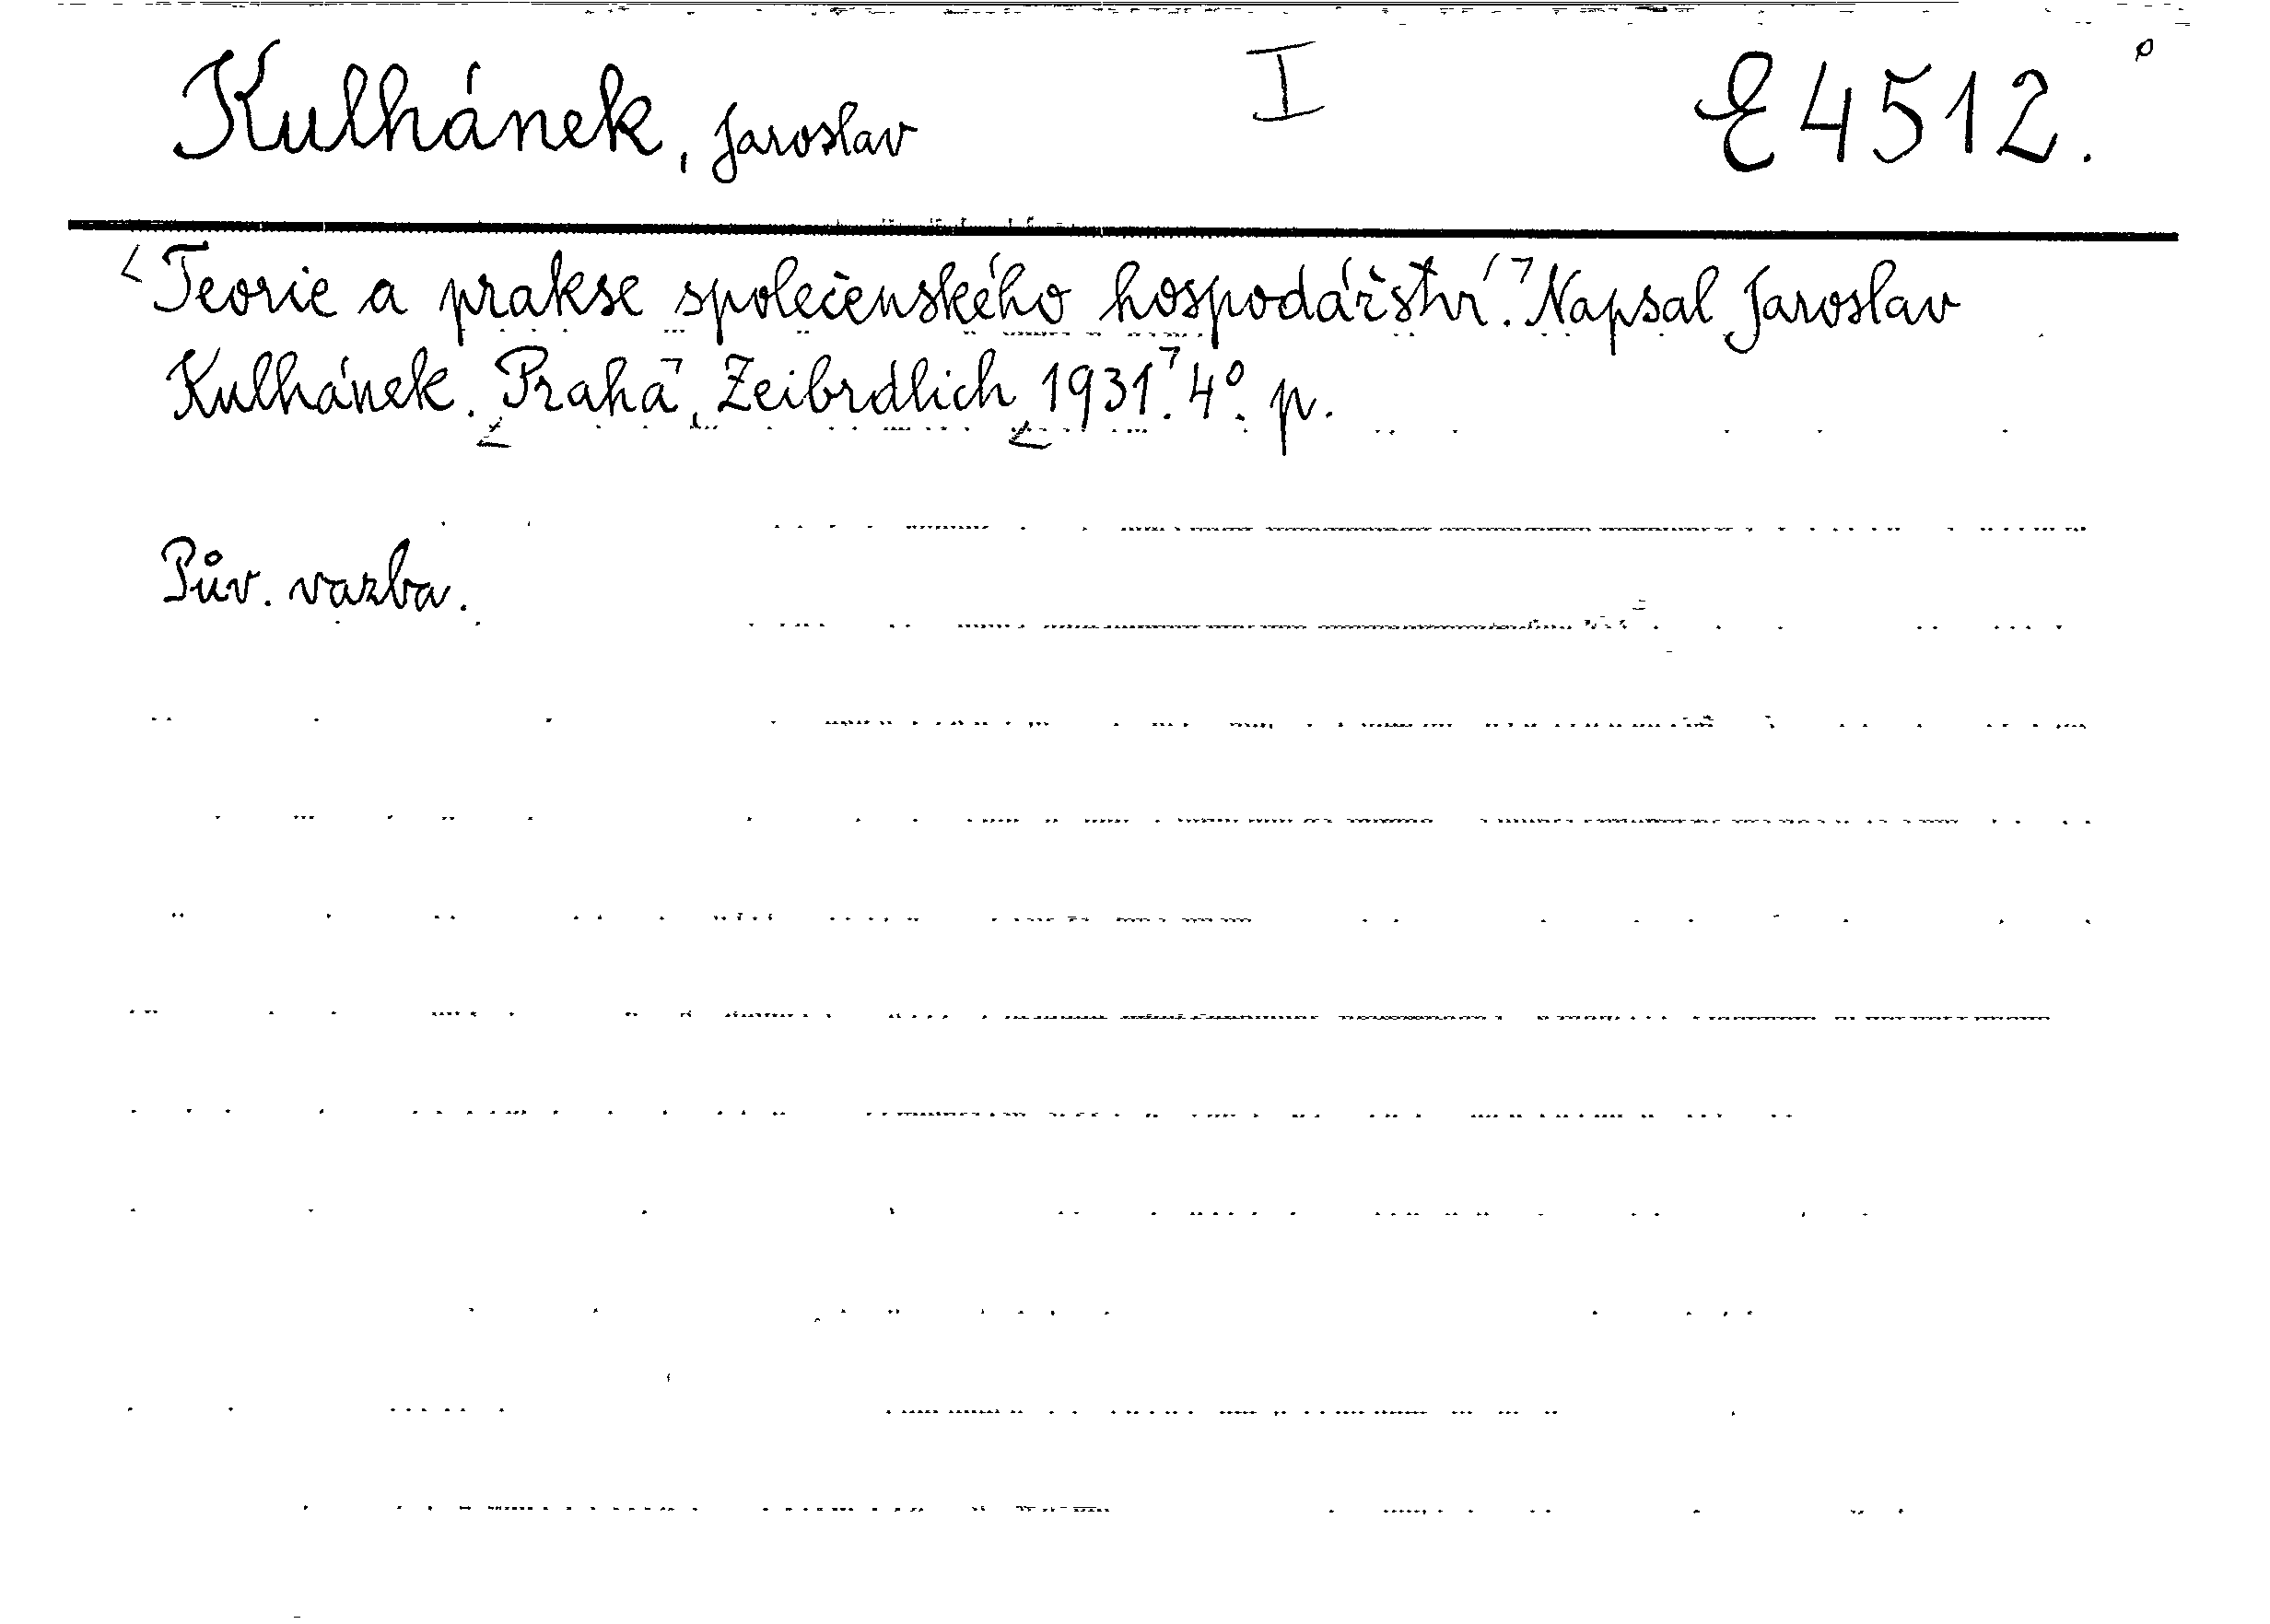 Kulhánek, Jaroslav I E 4512.
Teorie a prakse společenského hospodářství. Napsal Jaroslav
Kulhánek. Praha, Zeibrdlich 1931. 4°. p.
Pův. vazba.